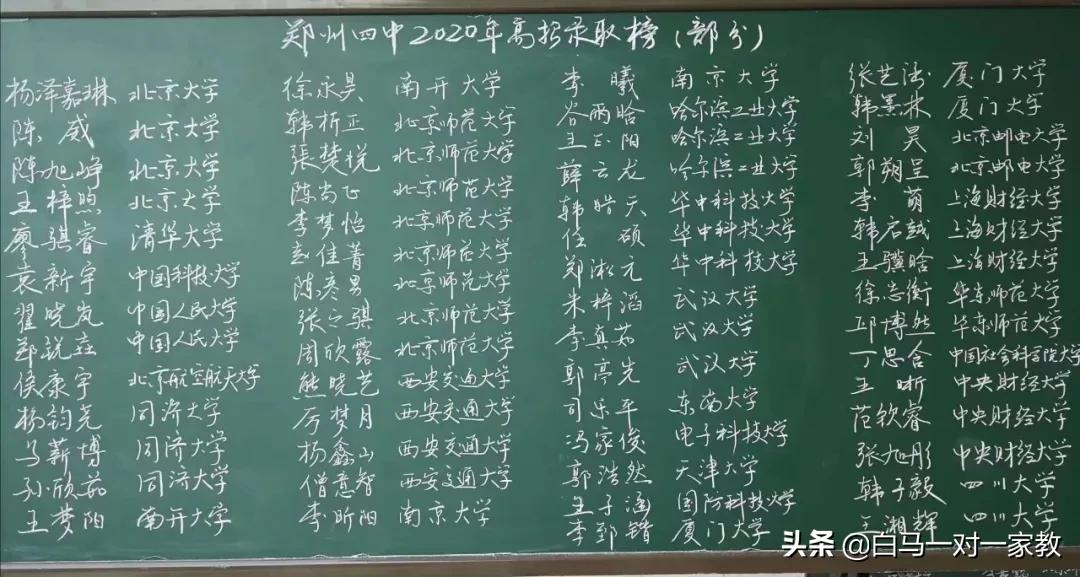 郑州四中2020年高招录取榜（部分）
杨泽嘉琳 北京大学
陈威 北京大学
陈旭峥 北京大学
王梓煦 北京大学
廖骐睿 清华大学
袁新宇 中国科技大学
翟晓岚 中国人民大学
郑锐垚 中国人民大学
侯康宇 北京航空航天大学
杨钧尧 同济大学
马薪博 同济大学
孙欣茹 同济大学
王梦阳 南开大学
徐永昊 南开大学
韩析正 北京师范大学
張楚悦 北京师范大学
陈尚正 北京师范大学
李梦怡 北京师范大学
佳菁 北京师范大学
陈彦昜 北京师范大学
张之骐 北京师范大学
周欣露 北京师范大学
熊晓艺 西安交通大学
厉梦月 西安交通大学
杨鑫山 西安交通大学
僧意智 西安交通大学
李昕阳 南京大学
李曦 南京大学
谷雨晗 哈尔滨工业大学
王正阳 哈尔滨工业大学
薛云龙 哈尔滨工业大学
韩皓天 华中科技大学
任硕 华中科技大学
郑淞元 华中科技大学
朱梓滔 武汉大学
李真茹 武汉大学
郭亭先 武汉大学
司乐平 东南大学
冯家俊 电子科技大学
郭浩然 天津大学
王子涵 国防科技大学
李郅锴 厦门大学
张艺 厦门大学
韩熹林 厦门大学
刘昊 北京邮电大学
郭朔呈 北京邮电大学
李萌 上海财经大学
韩启越 上海财经大学
王骥晗 上海财经大学
徐志衡 华东师范大学
邱博然 华东师范大学
丁思含 中国社会科学院大学
王昕 中央财经大学
范钦睿 中央财经大学
张旭彤 中央财经大学
韩子毅 四川大学
王湘辉 四川大学
头条 @白马一对一家教